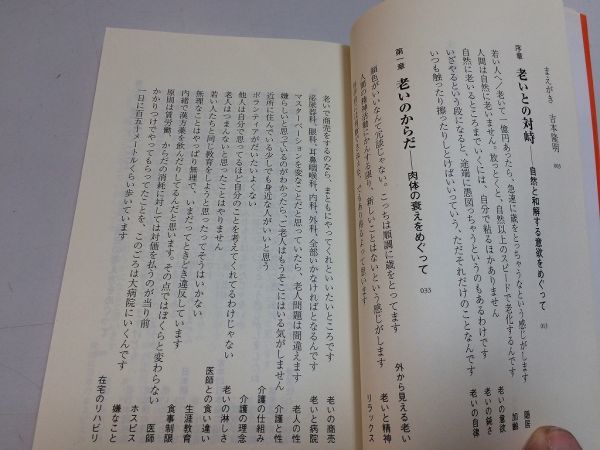 まえがき 吉本隆明 003
序章 老いとの対峙──自然と和解する意欲をめぐって 013
若い人へ/老いて一億円あったら、急速に歳をとっちゃうなという感じがします 隠居
人間は自然に老いません。放っとくと、自然以上のスピードで老化するんです 加齢
自然に老いるところまでいくには、自分で粘るほかありません 老いの意欲
いざやるという段になると、途端に愚図っちゃうというのもあるわけです 老いの鈍さ
いつも触ったり擦ったりしとけばいいっていう、ただそれだけのことなんです 老いの自律
第一章 老いのからだ──肉体の衰えをめぐって 033
顔色がいいなんて冗談じゃない。こっちは順調に歳をとってます 外から見える老い
人間の精神活動にかんする限り、新しいことはないという感じがします 老いと精神
リラックス
老いで商売をするのなら、まともにやってくれといいたいところです 老いの商売
泌尿器科、眼科、耳鼻咽喉科、内科、外科、全部いかなければとなるんです 老いと病院
マスターベーションを変なことだと思っていたら、老人問題は間違えます 老人の性
嫌らしいと思っているのがわかったら、ご老人はもうそこにはいる気がしません 介護と性
近所に住んでいる少しでも身近な人がいいと思う 介護の仕組み
ボランティアがだいたいよくない 介護の理念
他人は自分で思ってるほど自分のことを考えてくれてるわけじゃない 老いの淋しさ
老人はつまんないと思ったことはやりません 医師との食い違い
若い人たちと同じ教育をしようと思ったってそうはいかない 生涯教育
無理なことはやっぱり無理で、いまだってときどき違反しています 食事制限
内緒で漢方薬を飲んだりしてるんだと思います。その点ではぼくらと変わらない 医師
原則は賃労働、からだの消耗に対しては対価を払うのが当り前 ホスピス
かかりつけでやってもらってたことを、このごろは大病院にいくんです 嫌なこと
一日に百五十メートルくらい歩いています 在宅のリハビリ